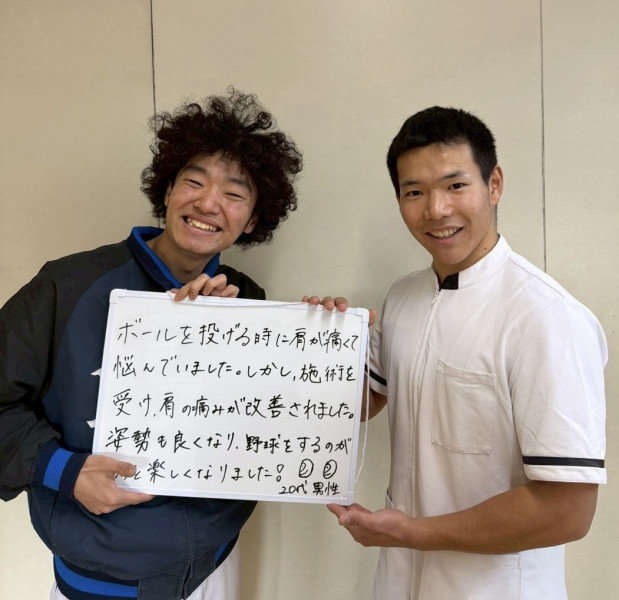 ボールを投げる時に肩が痛くて
悩んでいました。しかし、施術を
受け、肩の痛みが改善されました。
姿勢も良くなり、野球をするのが
を楽しくなりました!
20代 男性